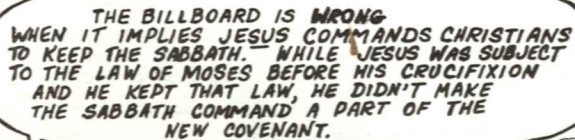 THE BILLBOARD IS WRONG
WHEN IT IMPLIES JESUS COMMANDS CHRISTIANS
TO KEEP THE SABBATH. WHILE JESUS WAS SUBJECT
TO THE LAW OF MOSES BEFORE HIS CRUCIFIXION
AND HE KEPT THAT LAW, HE DIDN'T MAKE
THE SABBATH COMMAND A PART OF THE
NEW COVENANT.